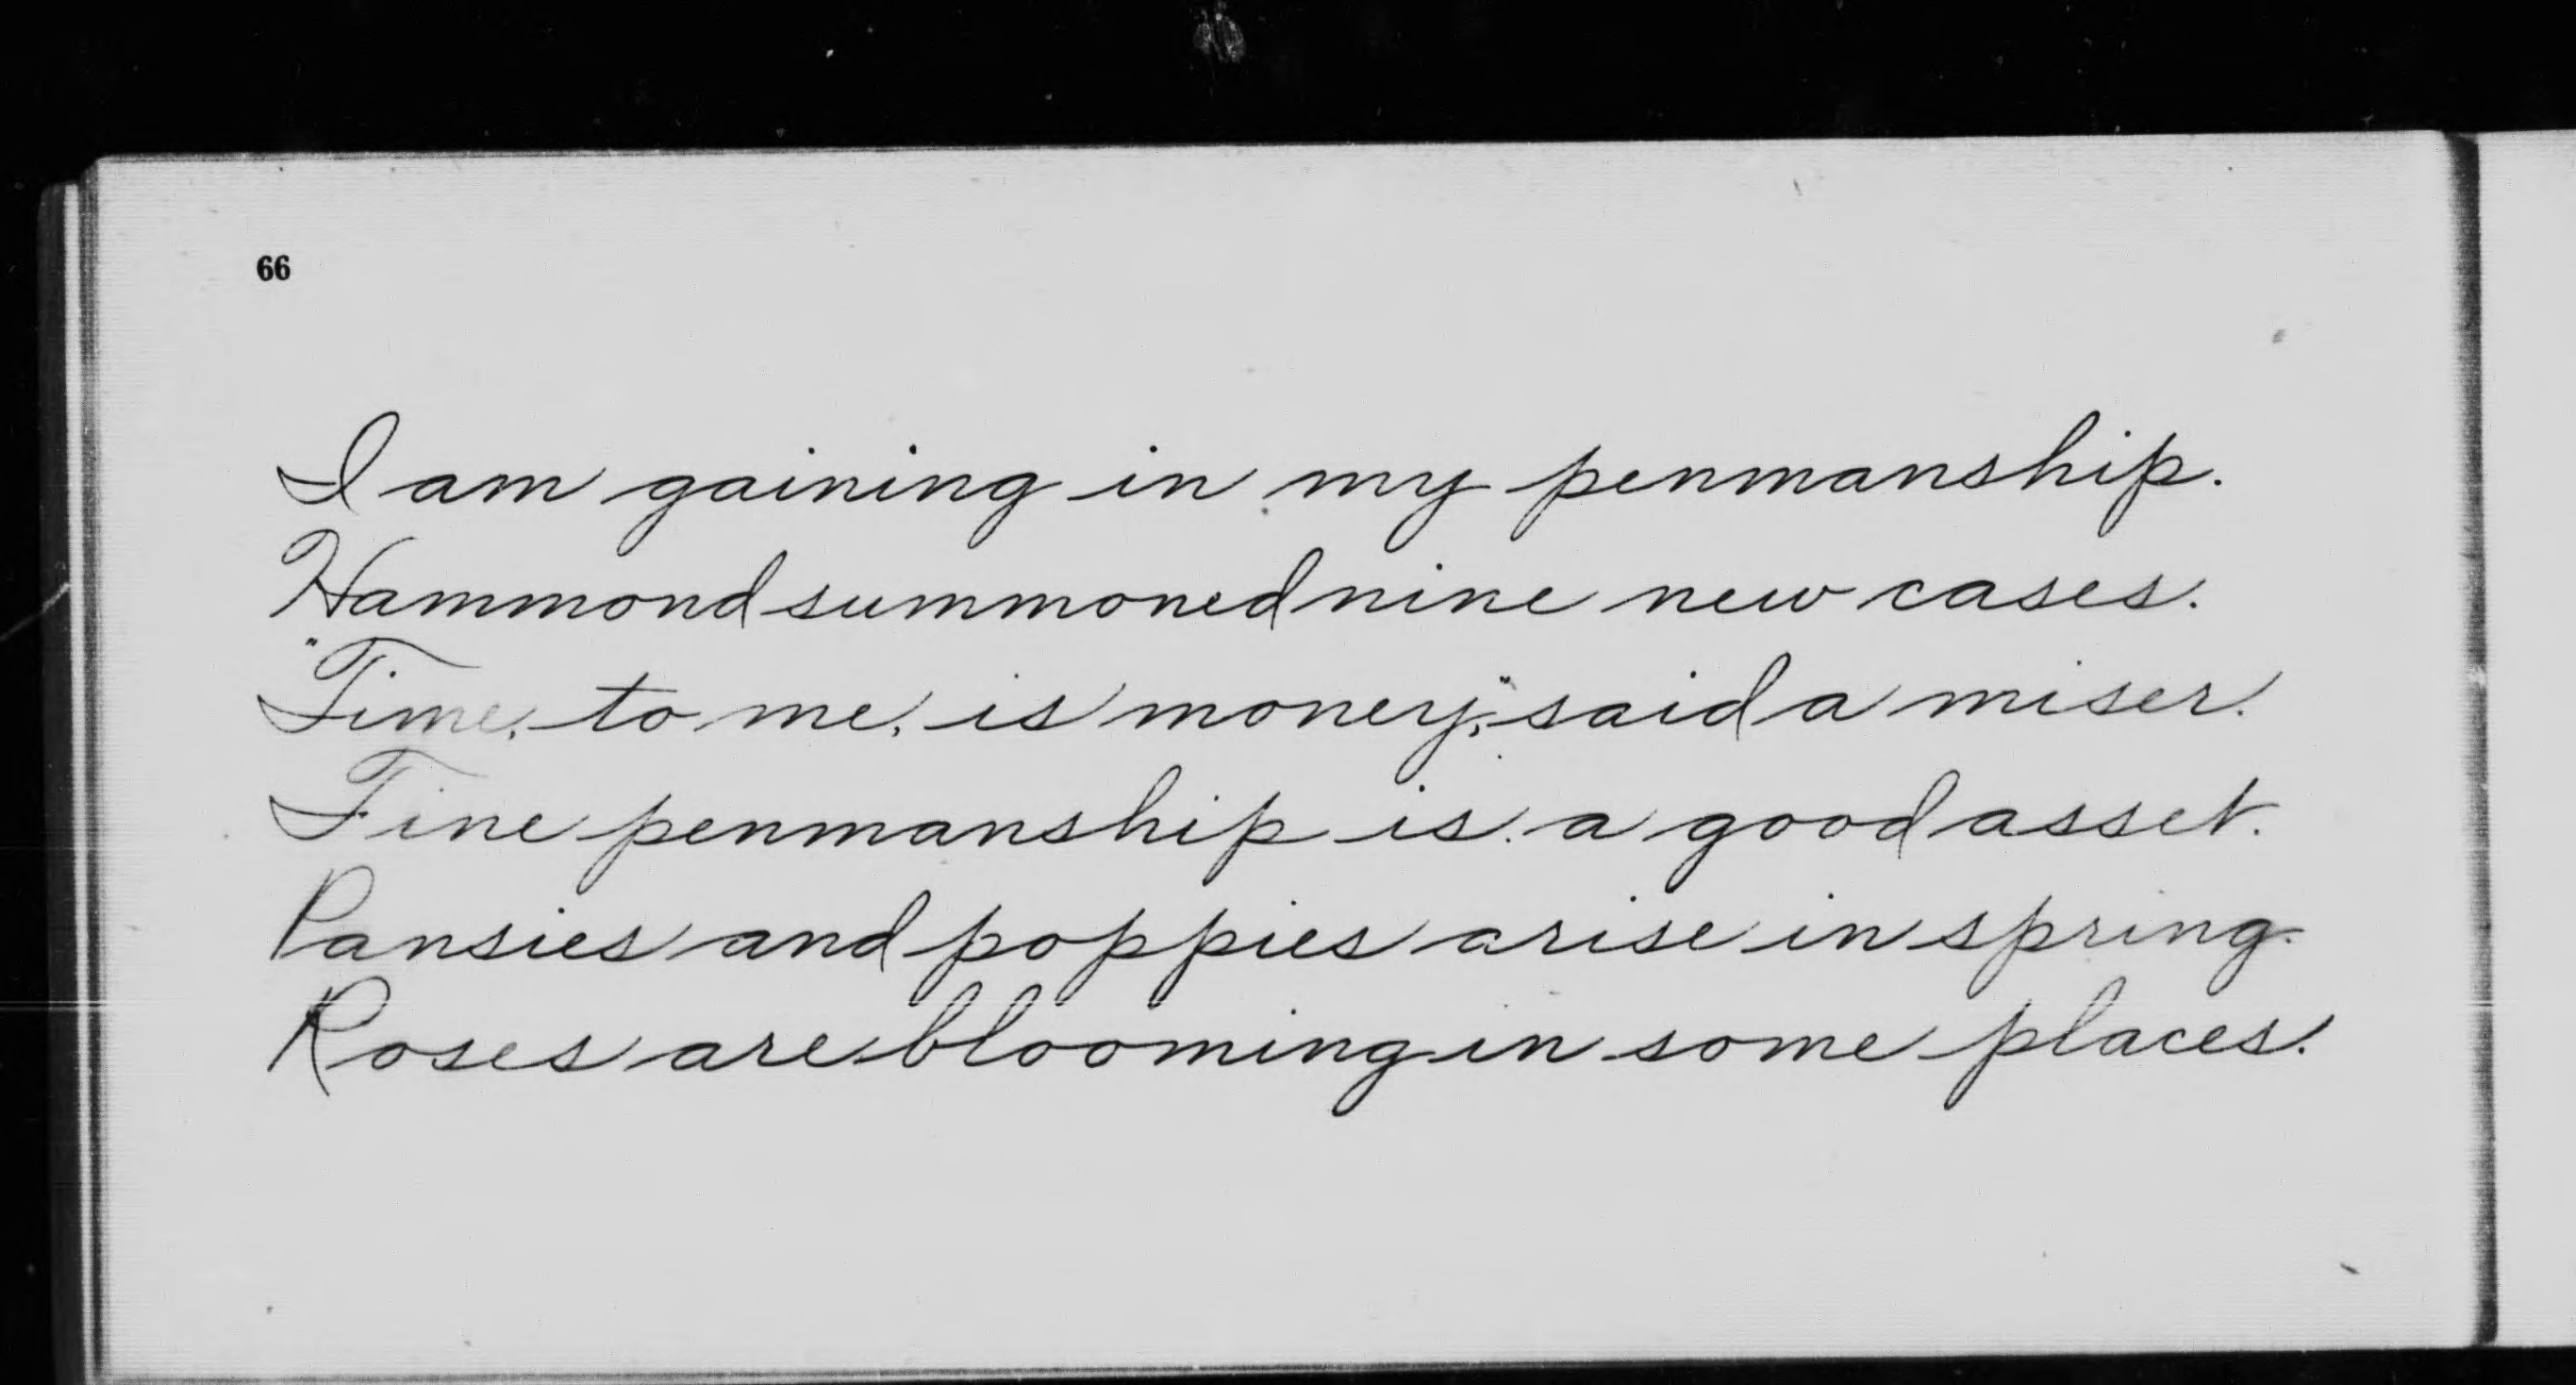 66
I am gaining in my penmanship.
Hammond summoned nine new cases.
"Time, to me, is money," said a miser.
Fine penmanship is a good asset.
Pansies and poppies arise in spring.
Roses are blooming in some places.